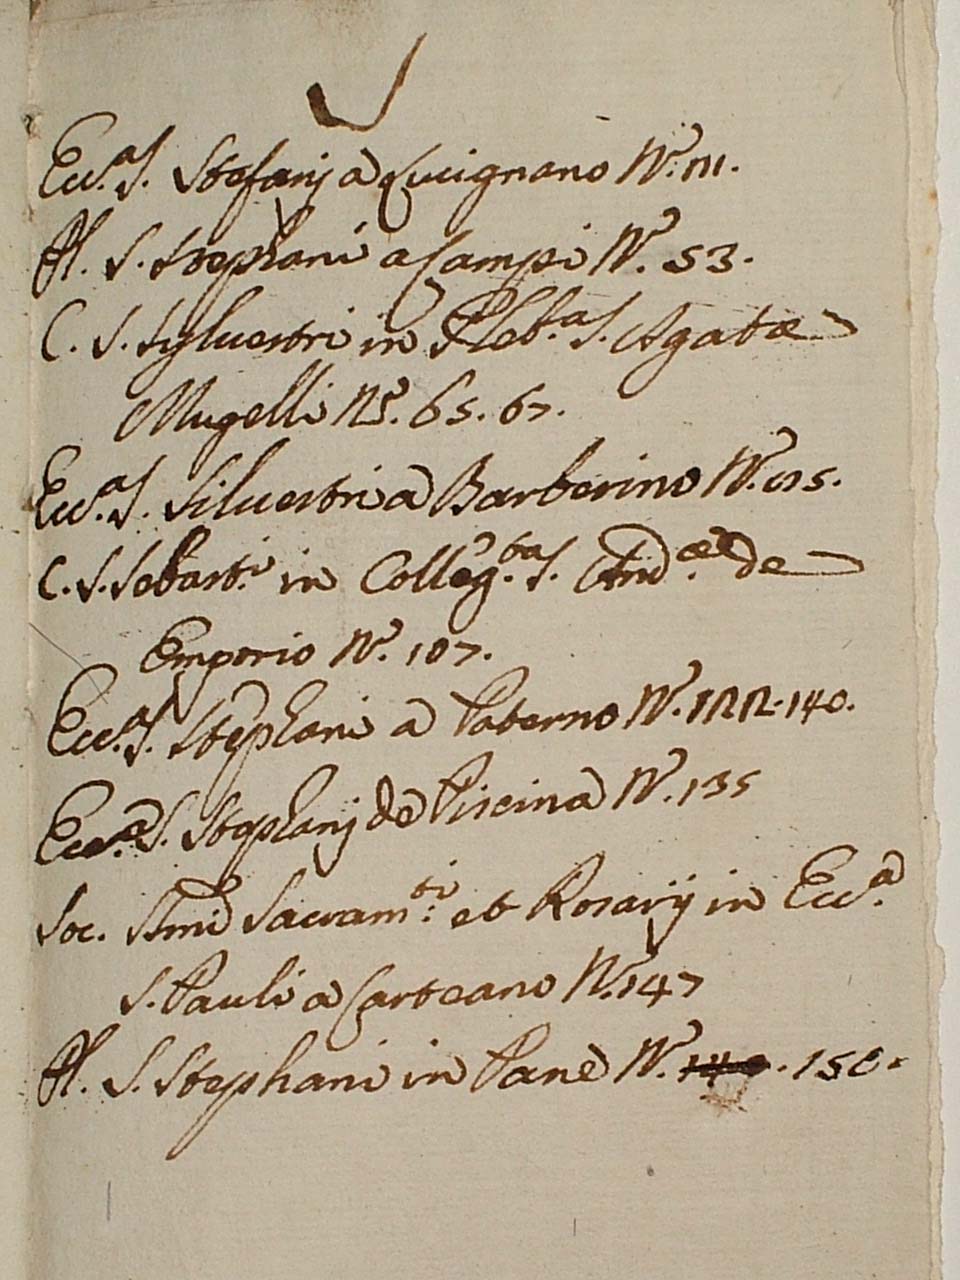 S
Ecc.a S. Stefanj a Lucignano N.o 111.
Pl. S. Stephani a Campi N.o 53.
C. S. Sylvestri in Pleb.a S. Agatæ
Mugelli N.s 65. 67.
Ecc.a S. Silvestri a Barberino N.o 115.
C. S. Sebast.i in Colleg.ta S. And.æ de
Emporio N.o 107.
Ecc.a S. Stephani a Paterno N.o 122. 140.
Ecc.a S. Stephanj de Piscina N.o 135
Soc. SSmi Sacram.ti et Rosarij in Ecc.a
S. Pauli a Carteano N. 147
Pl. S. Stephani in Pane N.o 150.